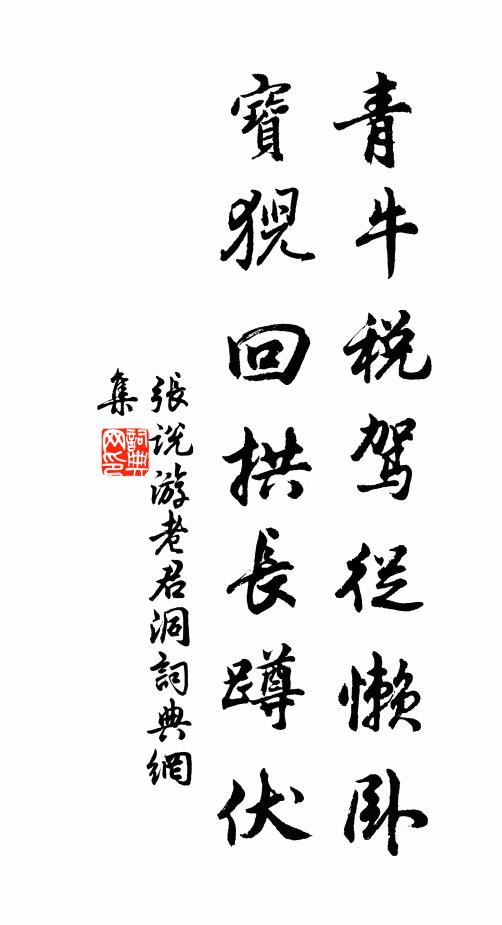 青牛税駕從懒卧
寶猊回拱長蹲伏
張说游老君洞詞典網
集
詞典网印